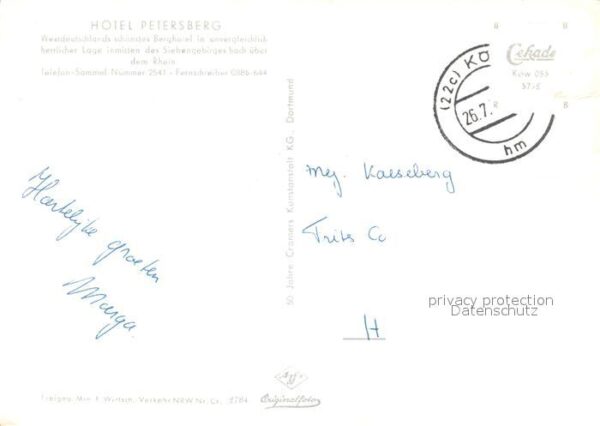 HOTEL PETERSBERG
Westdeutschlands schönstes Berghotel in unvergleichlich
herrlicher Lage inmitten des Siebengebirges hoch über
dem Rhein
Telefon-Sammel Nummer 2541 - Fernschreiber 0886-644
Hartelijke groeten
Marga
50 Jahre Cramers Kunstanstalt KG., Dortmund
Cekade
Köw 055
(22c) KÖ
26.7.
hm
Mej. Kaeseberg
Frits Co
H
privacy protection
Datenschutz
Agfa
Originalfoto
Freigeg. Min. f. Wirtsch. Verkehr NRW Nr. Cr. 2784